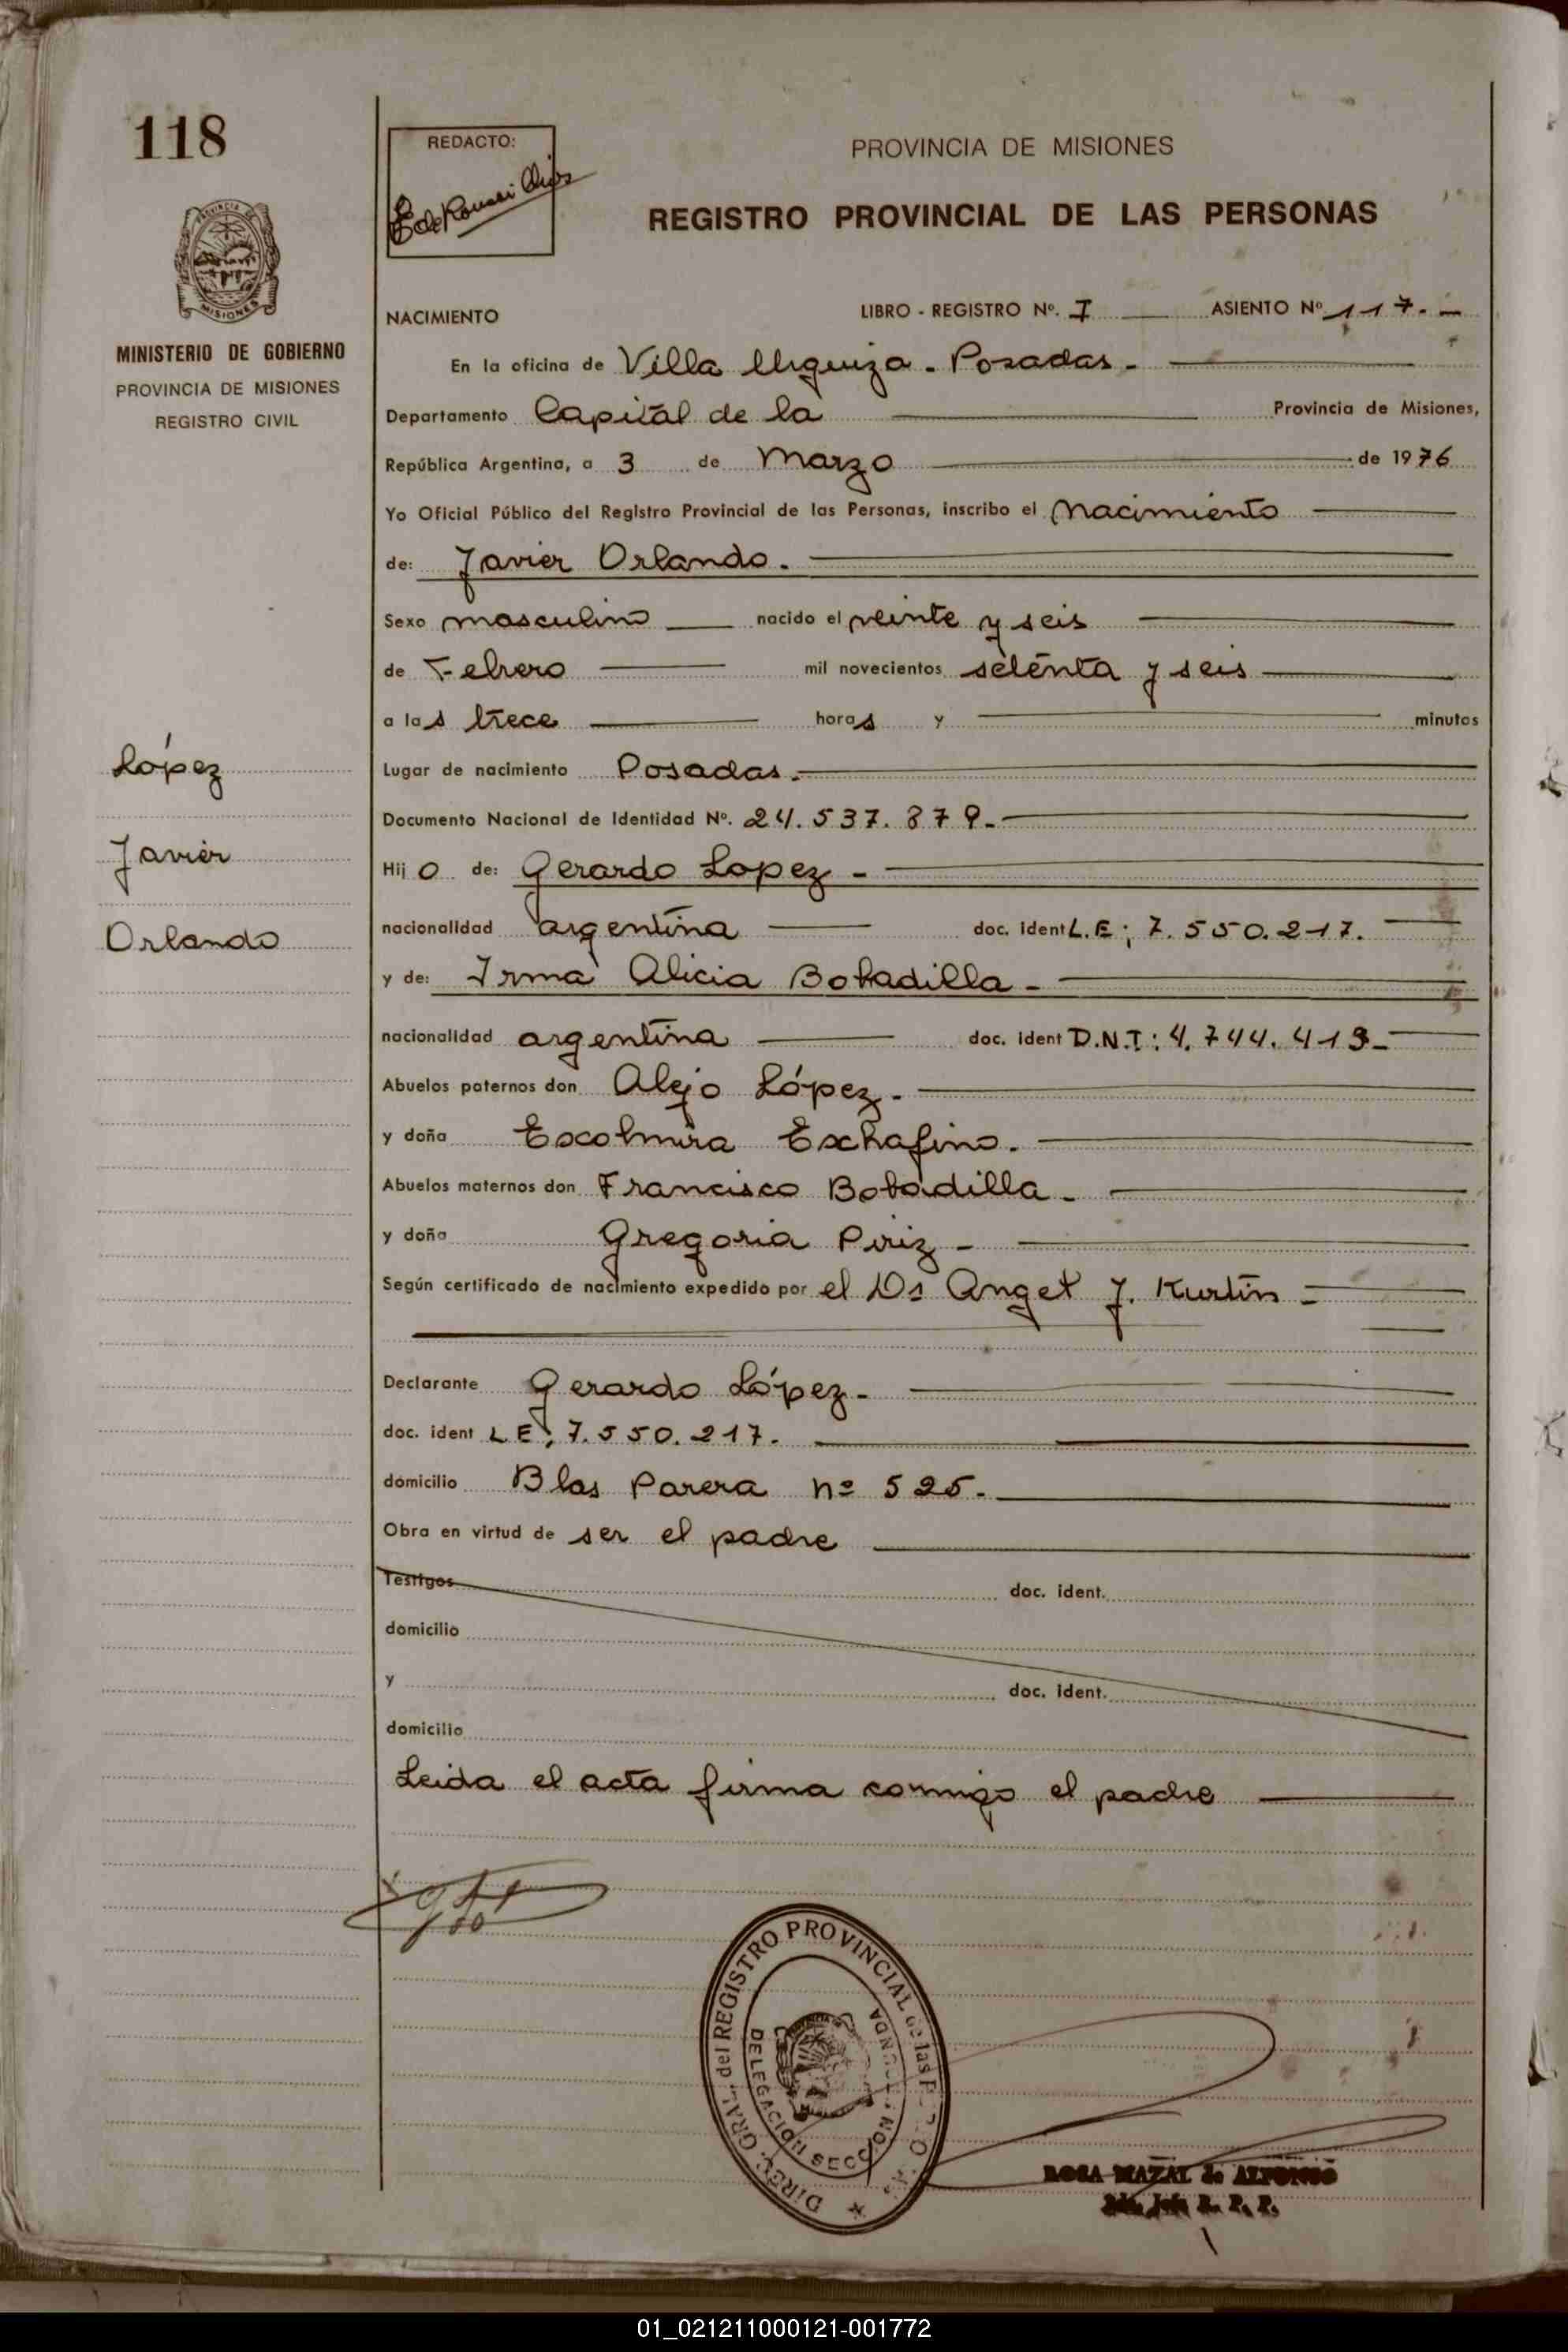 118
REDACTO:
PROVINCIA DE MISIONES
REGISTRO PROVINCIAL DE LAS PERSONAS
PROVINCIA DE
MISIONES
MINISTERIO DE GOBIERNO
PROVINCIA DE MISIONES
REGISTRO CIVIL
López
Javier
Orlando
NACIMIENTO LIBRO - REGISTRO Nº. I ASIENTO Nº 117.-
En la oficina de Villa Urquiza - Posadas -
Departamento Capital de la Provincia de Misiones,
República Argentina, a 3 de Marzo de 1976
Yo Oficial Público del Registro Provincial de las Personas, inscribo el Nacimiento
de: Javier Orlando.
Sexo masculino nacido el veinte y seis
de Febrero mil novecientos setenta y seis
a las trece horas y minutos
Lugar de nacimiento Posadas.
Documento Nacional de Identidad Nº. 24.537.879.
Hijo de: Gerardo Lopez -
nacionalidad argentina doc. ident L.E: 7.550.217.
y de: Irma Alicia Bobadilla -
nacionalidad argentina doc. ident D.N.I: 4.744.419-
Abuelos paternos don Alejo López.
y doña
Abuelos maternos don Francisco Bobadilla -
y doña Gregoria Piriz -
Según certificado de nacimiento expedido por el Dr Angel J. Kurtin -
Declarante Gerardo López -
doc. ident L E: 7.550.217.
domicilio Blas Parera nº 525.
Obra en virtud de ser el padre
Testigos doc. ident.
domicilio
y doc. ident.
domicilio
Leida el acta firma conmigo el padre
DIREC. GRAL. del REGISTRO PROVINCIAL de las
DELEGACION SECCION
ROSA MAZAL de ALFONSO
R. P. P.
01_021211000121-001772